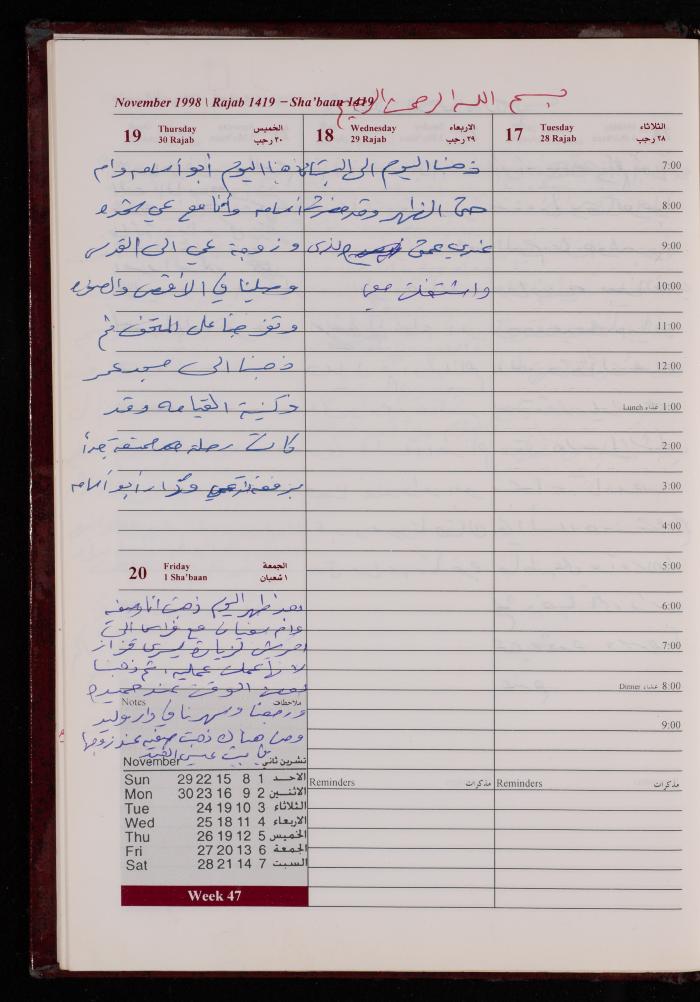 بسم الله الرحمن الرحيم
November 1998 \ Rajab 1419 – Sha'baan 1419
17 Tuesday 28 Rajab الثلاثاء ٢٨ رجب
18 Wednesday 29 Rajab الاربعاء ٢٩ رجب
19 Thursday 30 Rajab الخميس ٣٠ رجب
7:00
8:00
9:00
10:00
11:00
12:00
Lunch غداء 1:00
2:00
3:00
4:00
5:00
6:00
7:00
Dinner عشاء 8:00
9:00
Reminders مذكرات
ذهبنا اليوم الى البستان
حتى الظهر وقد حضرت
عندي عمتي لذى
واشتغلت معي
Reminders مذكرات
ذهبنا اليوم أبو أسامه وام
أسامه وأنا مع عمي
و زوجة عمي الى القدس
وصلينا في الأقصى والصخره
وتفرجنا على المتحف ثم
ذهبنا الى مسجد عمر
وكنيسة القيامه وقد
كانت رحلة ممتعة جداً
برفقة عمي ودار أبو أسامه
20 Friday 1 Sha'baan الجمعة ١ شعبان
بعد ظهر اليوم ذهبت أنا وصفيه
وام سفيان مع فراس الى
لزيارة يسرى
عملت عملية، ثم ذهبنا
لبعض الوقت عند
Notes ملاحظات
ورجعنا وسهرنا في دار وليد
ومن هناك ذهبت صفيه عند زوجها
في بيت
November تشرين ثاني
Sun 29 22 15 8 1 الاحـد
Mon 30 23 16 9 2 الاثنـين
Tue 24 19 10 3 الثلاثاء
Wed 25 18 11 4 الاربعاء
Thu 26 19 12 5 الخميس
Fri 27 20 13 6 الجمعة
Sat 28 21 14 7 السبت
Week 47